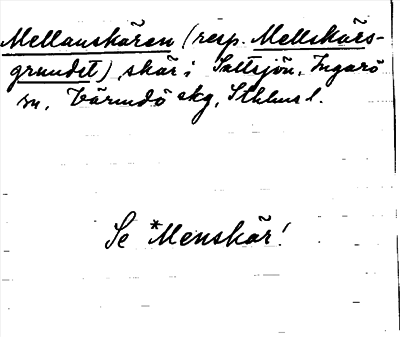 Mellanskären (resp. Mellskärs-
grundet) skär i Saltsjön, Ingarö
sn, Värmdö skg, Sthlms l.
Se *Menskär!